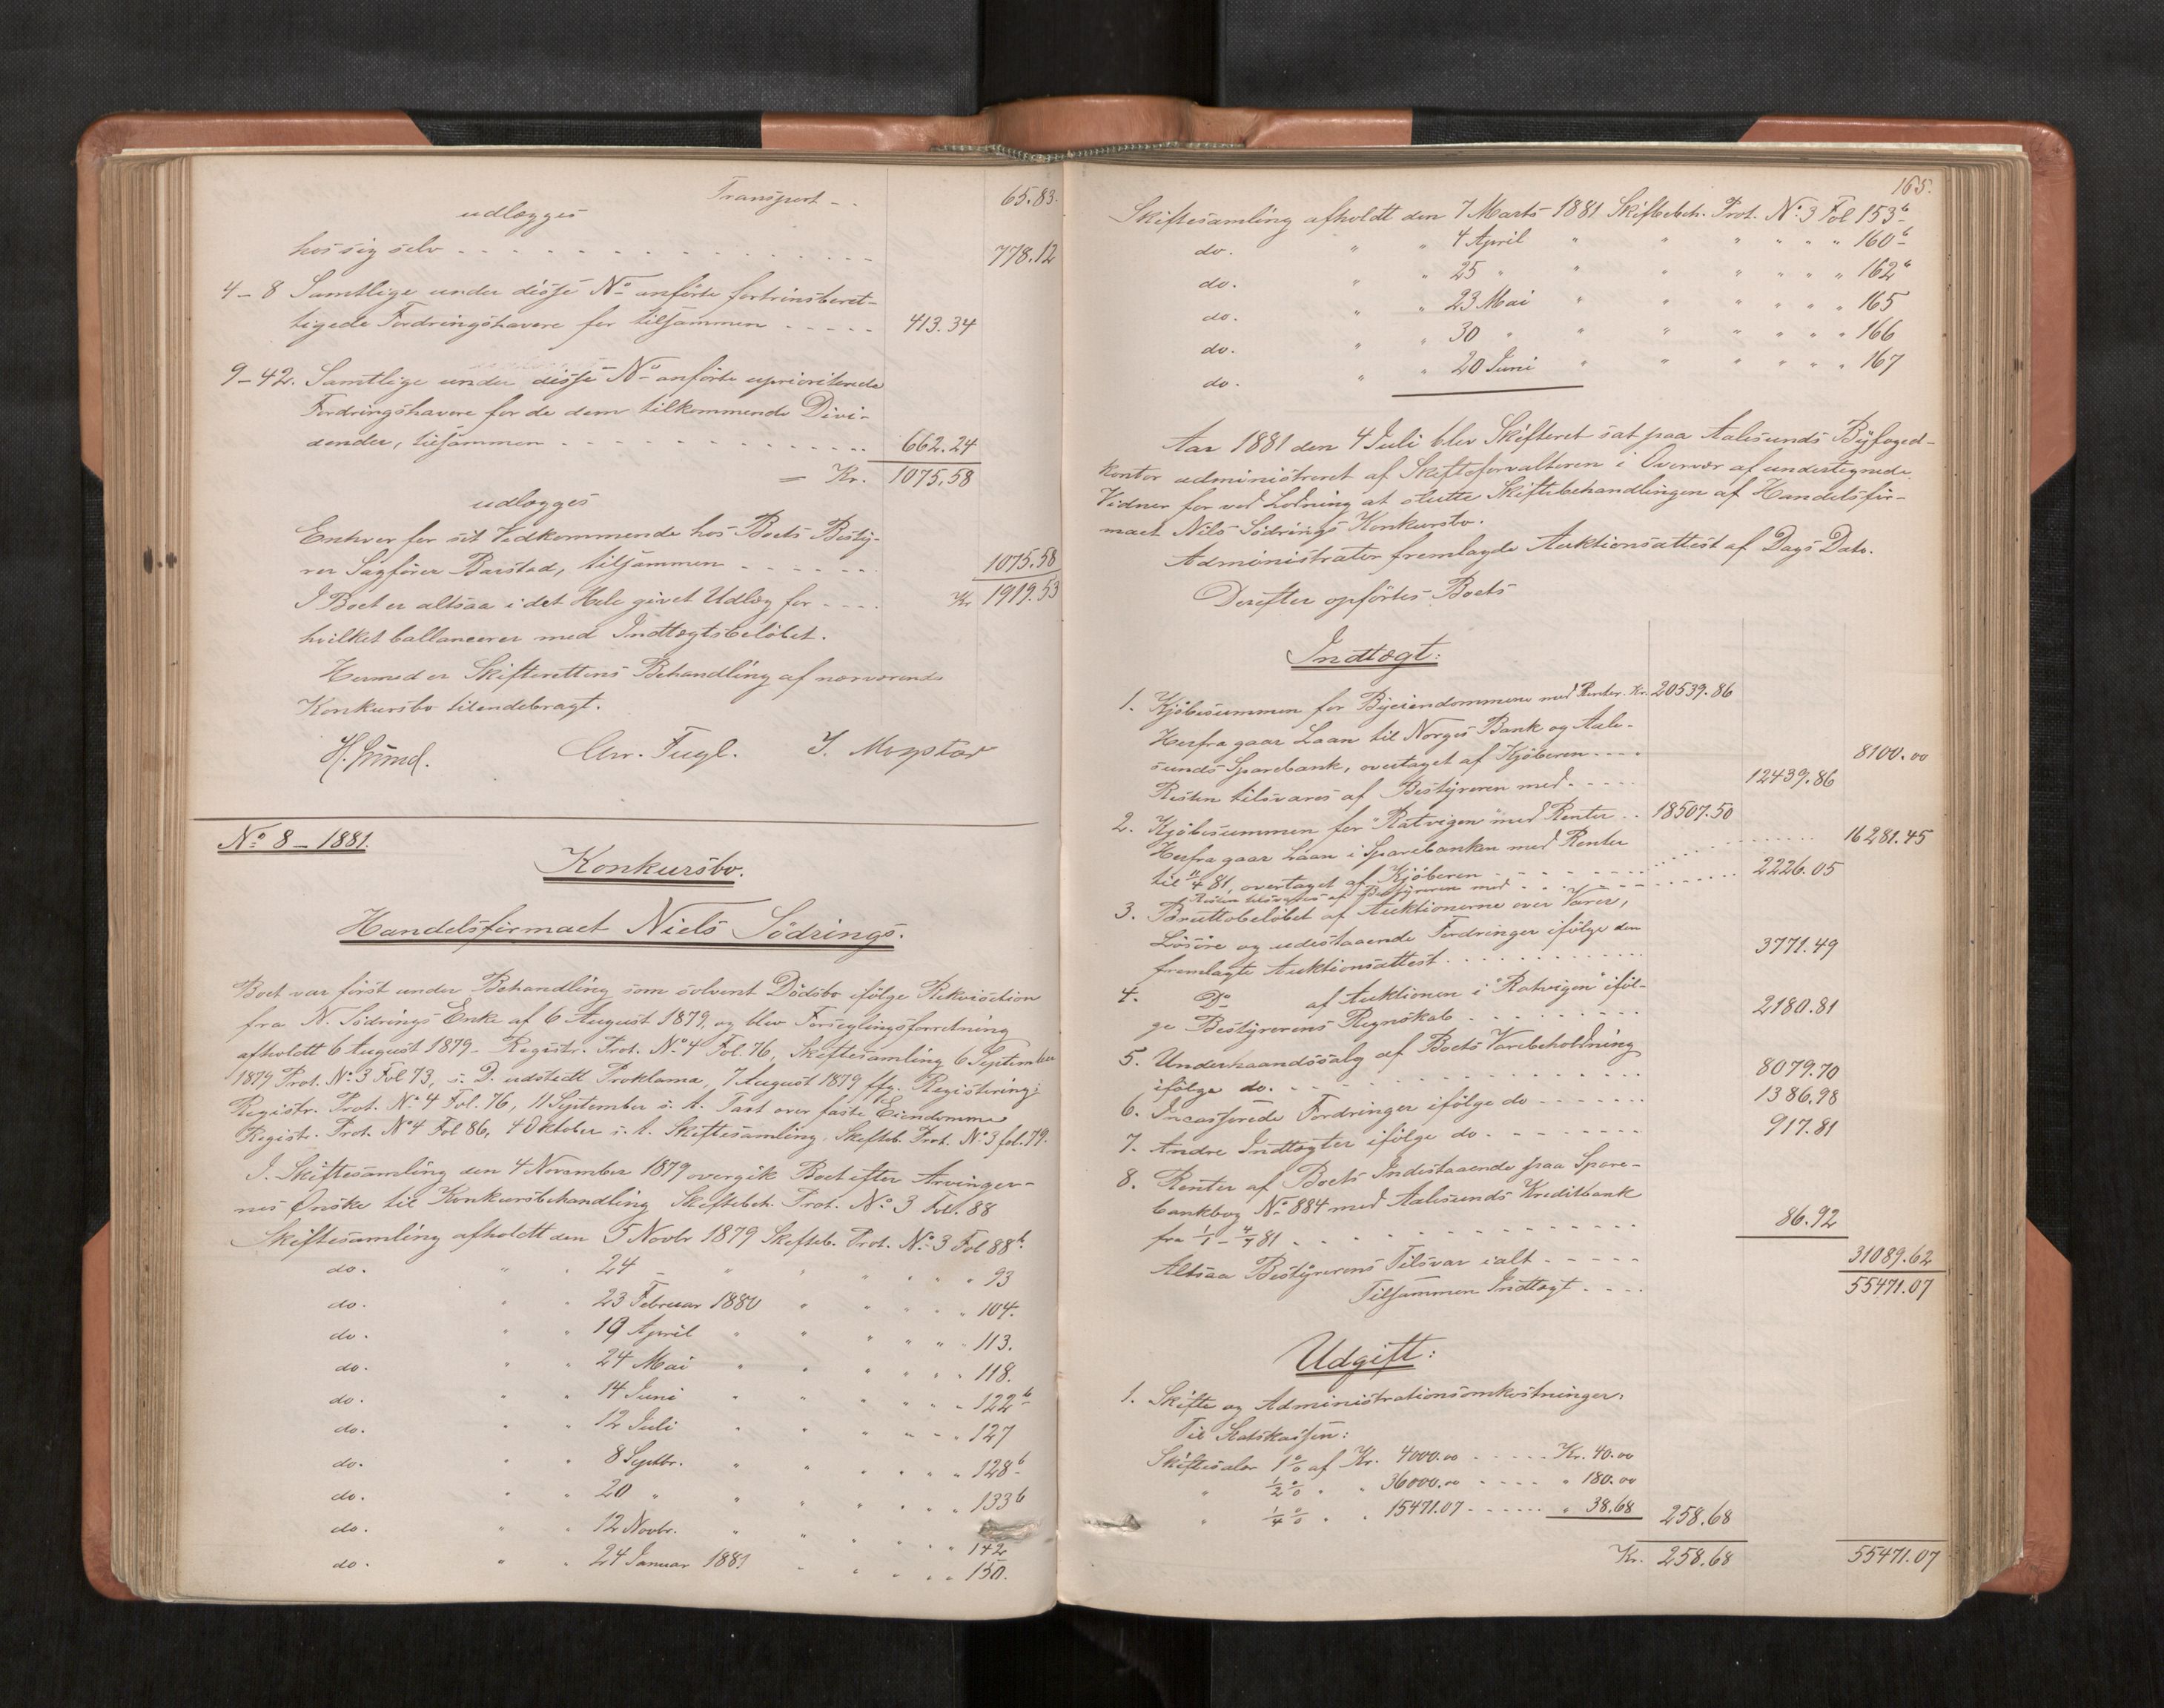 Transport - . 65.83.
udlægges
hos sig selv - - - - 778.12
4-8 Samtlige under disse No anførte fortrinsberet-
tigede Fordringshavere for tilsammen - - - - - 413.34
9-42. Samtlige under disse No anførte uprioriterede
Fordringshavere for de dem tilkommende Divi-
dender, tilsammen - - - - 662.24
= Kr. 1075.58
udlægges
Enhver for sit Vedkommende hos Boets Besty-
rer Sagfører Barstad, tilsammen - - - - 1075.58
I Boet er altsaa i det Hele givet Udlæg for - - - - Kr 1919.53
hvilket ballancerer med Indtægtsbeløbet.
Hermed er Skifterettens Behandling af nærværende
Konkursbo tilendebragt.
Chr. Fugl.
No 8 - 1881.
Konkursbo.
Handelsfirmaet Niels Södrings.
Boet var först under Behandling som solvent Dödsbo ifölge Rekvisition
fra N. Södrings Enke af 6 August 1879, og blev Forseglingsforretning
afholdt 6 August 1879 - Registr. Prot. No 4 Fol. 76, Skiftesamling 6 September
1879 Prot. No 3 Fol 73, s. D. udstedt Proklama, 7 August 1879 ffg. Registrering:
Registr. Prot. No 4 Fol. 76, 11 September s. A. Taxt over faste Eiendomme
Registr. Prot. No 4 Fol 86, 4 Oktober s. A. Skiftesamling. Skifteb. Prot. No 3 fol. 79.
I Skiftesamling den 4 November 1879 overgik Boet efter Arvinger-
nes Önske til Konkursbehandling Skiftebeh. Prot. No 3 Fol. 88
Skiftesamling afholdt den 5 Novbr 1879 Skifteb. Prot. No 3 Fol 88b.
do. " " 24 - " " " " " 93
do. " " 23 Februar 1880 " " " " " 104.
do. " " 19 April " " " " " 113.
do. " " 24 Mai " " " " " 118.
do. " " 14 Juni " " " " " 122b
do. " " 12 Juli " " " " " 127
do. " " 8 Septbr. " " " " " 128b
do. " " 20 " " " " " " 133b
do. " " 12 Novbr. " " " " " 142
do. " " 24 Januar 1881 " " " " " 150.
165.
Skiftesamling afholdt den 7 Marts 1881 Skiftebeh. Prot. No 3 Fol 153b
do. " " 4 April " " " " " 160b
do. " " 25 " " " " " " 162b
do. " " 23 Mai " " " " " 165
do. " " 30 " " " " " " 166
do. " " 20 Juni " " " " " 167
Aar 1881 den 4 Juli blev Skifteret sat paa Aalesunds Byfoged-
kontor administreret af Skifteforvalteren i Overvær af undertegnede
Vidner for ved Lodning at slutte Skiftebehandlingen af Handelsfir-
maet Nils Södrings Konkursbo.
Administrator fremlagde Auktionsattest af Dags Dato.
Derefter opförtes Boets
Indtægt:
1. Kjöbesummen for Byeiendommene med Renter. Kr. 20539.86
Herfra gaar Laan til Norges Bank og Aale-
sunds Sparebank, overtaget af Kjöberen - - - - 8100.00
Resten tilsvares af Bestyreren med - - - - 12439.86
2. Kjöbesummen for "Ratvigen" med Renter . . 18507.50
Herfra gaar Laan i Sparebanken med Renter
til 11/4 81, overtaget af Kjöberen - - - - 16281.45
Resten tilsvares af Bestyreren med - - - - 2226.05
3. Bruttobelöbet af Auktionerne over Varer,
Lösöre og udestaaende Fordringer ifölge den
fremlagte Auktionsattest . . . . 3771.49
4. Do af Auktionen i "Ratvigen" iföl-
ge Bestyrerens Regnskab . . . . 2180.81
5. Underhaandssalg af Boets Varebeholdning
ifölge do. - - - - 8079.70
6. Incasserede Fordringer ifölge do - - - - 1386.98
7. Andre Indtægter ifölge do. - - - - 917.81
8. Renter af Boets Indestaaende paa Spare-
bankbog No 884 med Aalesunds Kreditbank
fra 1/1 - 4/7 81 - - - - 86.92
Altsaa Bestyrerens Tilsvar ialt - - - - 31089.62
Tilsammen Indtægt - - - - 55471.07
Udgift:
1. Skifte og Administrationsomkostninger:
Til Statskassen:
Skiftesalær 1 % af Kr. 4000.00 - - - - Kr. 40.00
" 1/2 % " " 36000.00 - - - - " 180.00
" 1/4 % " " 15471.07 - - - - " 38.68 258.68
Kr. 258.68 55471.07